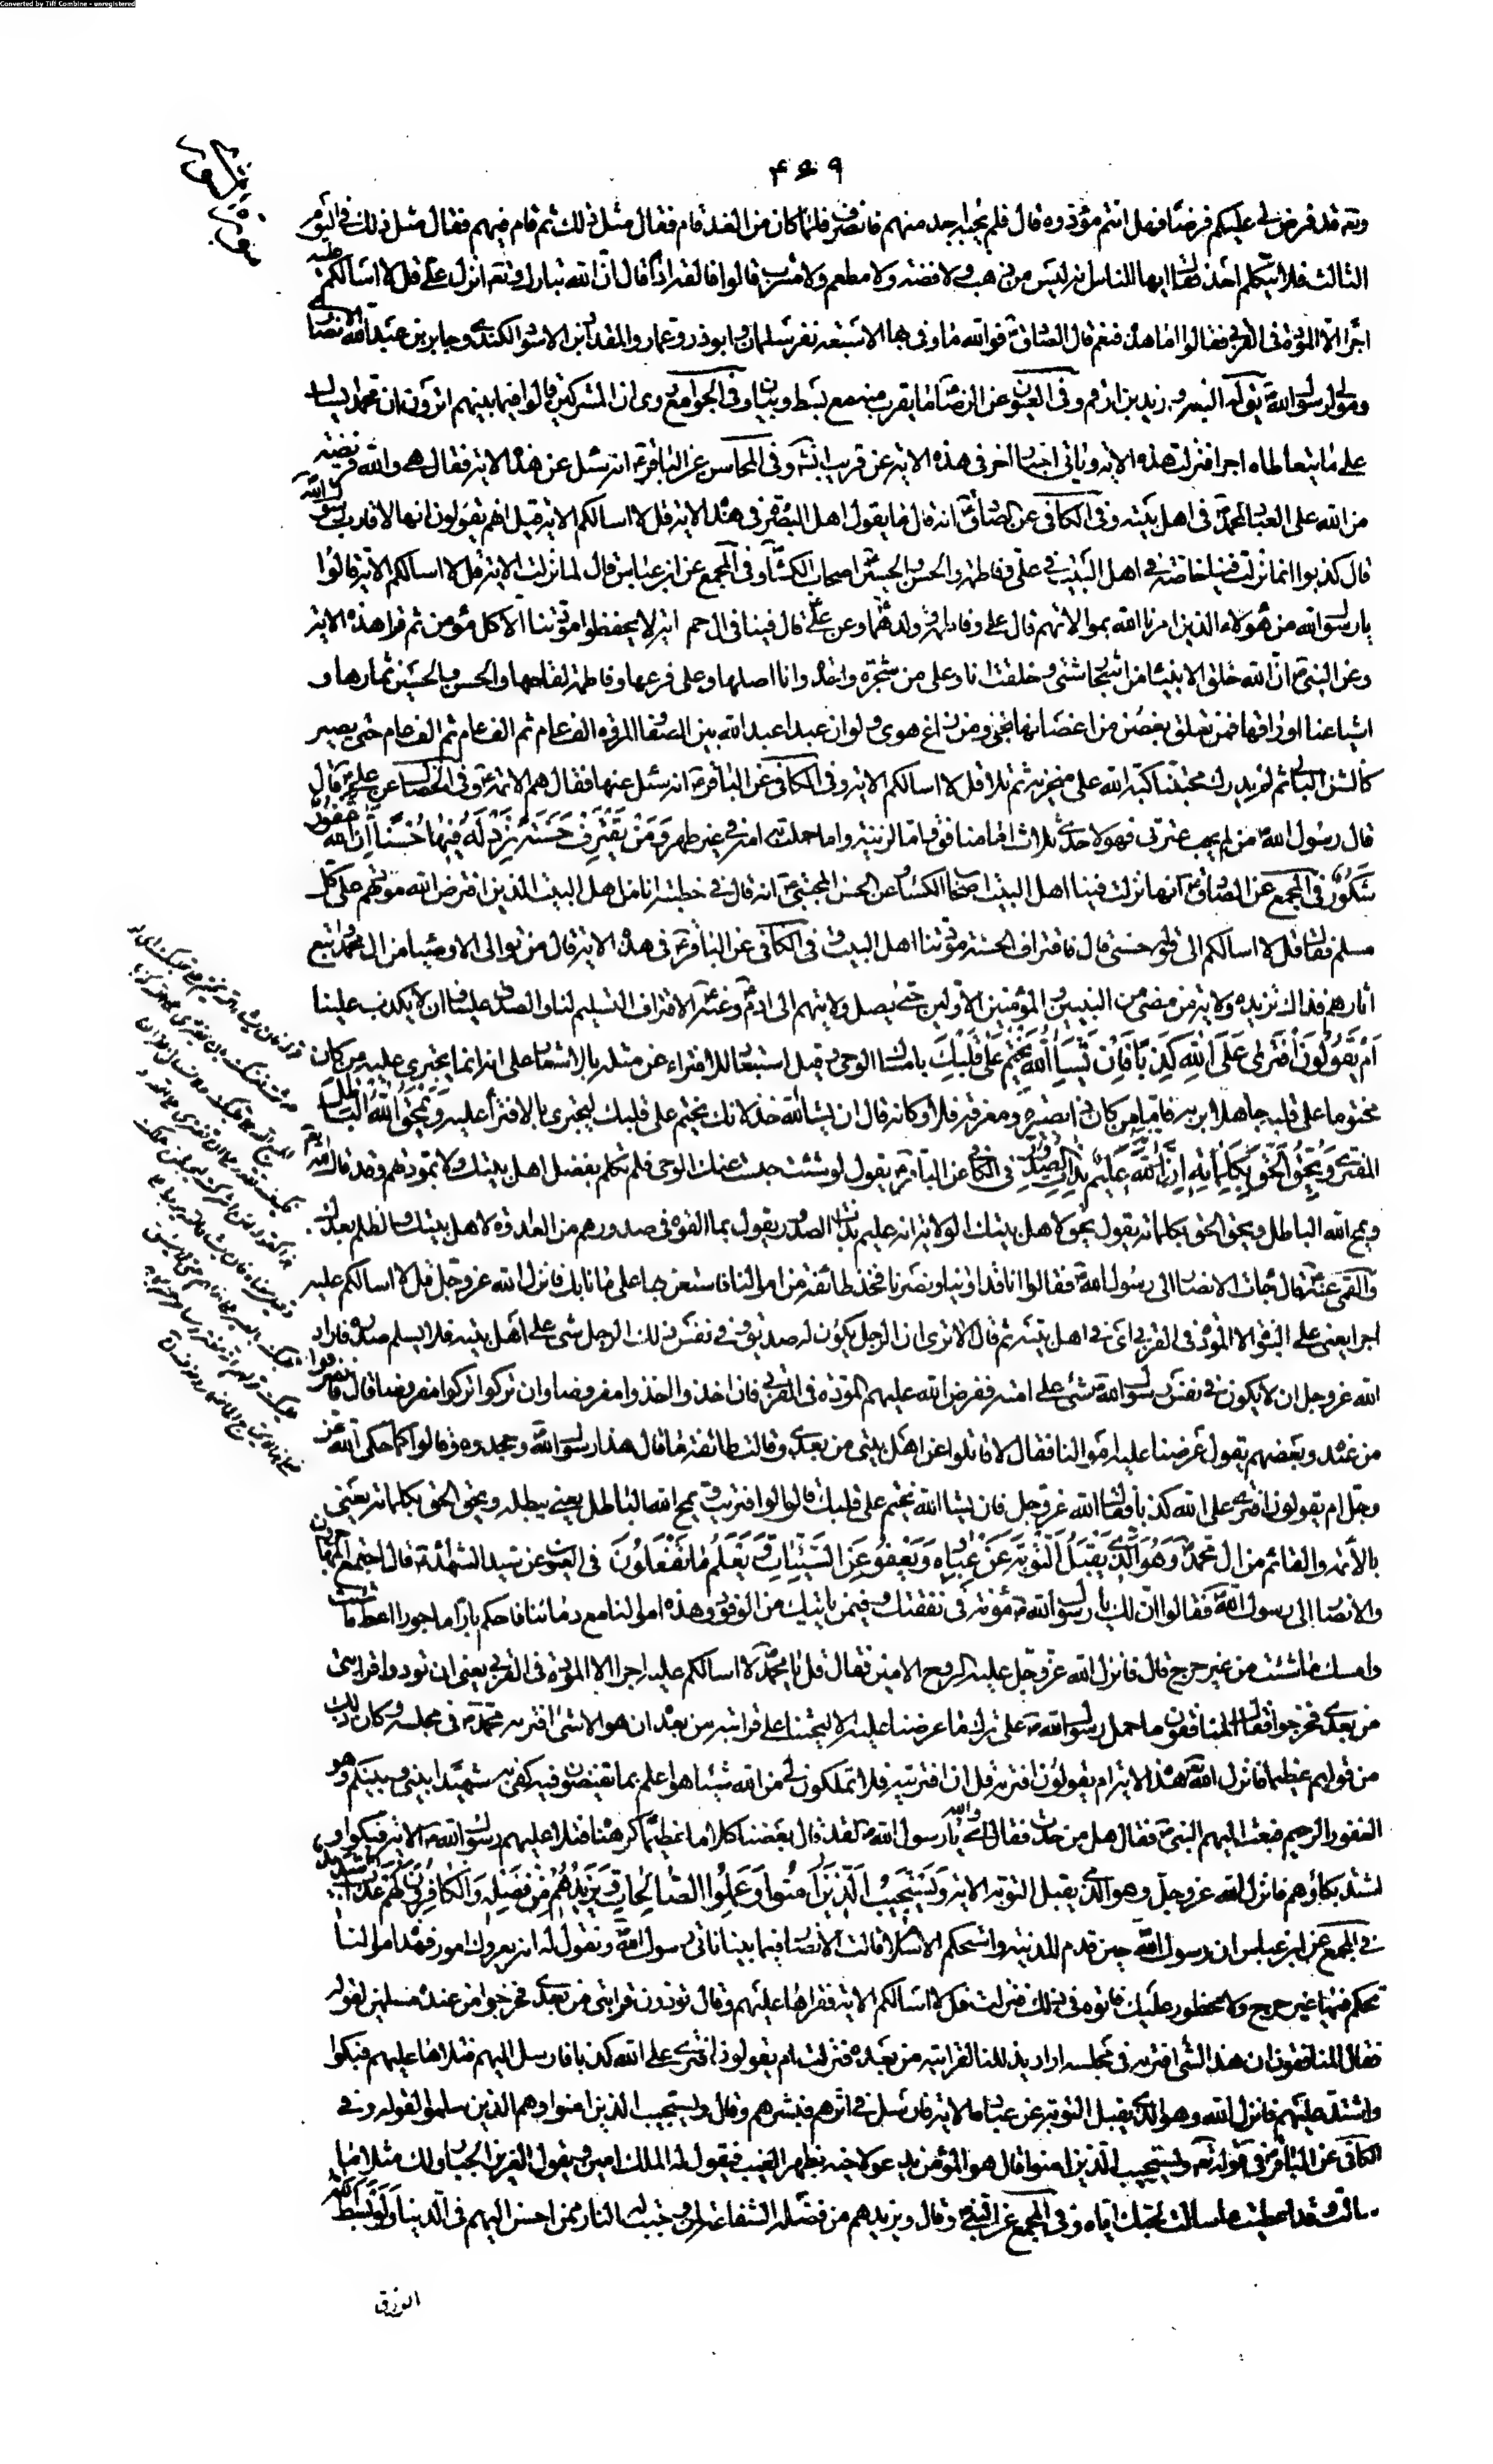 Converted by Tiff Combine - unregistered
۴۵۹
وتعه قد فرض لى عليكم فرضا فهل انتم مؤدوه قال فلم يجبه احد منهم فانصرف فلما كان من الغد قام فقال مثل ذلك ثم قام فيهم فقال مثل ذلك فى اليوم
الثالث فلم يتكلم احد فقال ايها الناس انه ليس من ذهب ولا فضة ولا مطعم ولا مشرب قالوا فالقه اذا قال ان الله تبارك وتعه انزل على قل لا اسالكم عليه
اجرا الا المودة فى القربى فقالوا اما هذه فنعم قال الصادق فوالله ما وفى بها الا سبعة نفر سلمان وابوذر وعمار والمقداد ابن الاسود الكندى وجابر بن عبد الله الانصارى
ومولى لرسول الله يقال له وزيد بن ارقم وفى العيون عن الرضا ما يقرب منه مع بسط وبيان وفى الجوامع روى ان المشركين قالوا فيما بينهم اترون ان محمدا يسال
على ما يتعاطاه اجرا فنزلت هذه الاية وياتى اخبار اخر فى هذه الاية عن قريب انشه وفى المحاسن عن الباقر انه سئل عن هذه الاية فقال هى والله فريضة
من الله على العباد لمحمد فى اهل بيته وفى الكافى عن الصادق انه قال ما يقول اهل البصرة فى هذه الاية قل لا اسالكم الاية قيل انهم يقولون انها لاقارب رسول الله
قال كذبوا انما نزلت فينا خاصة فى اهل البيت فى على وفاطمة والحسن والحسين اصحاب الكساء وفى المجمع عن ابن عباس قال لما نزلت الاية قل لا اسالكم الاية قالوا
يا رسول الله من هؤلاء الذين امرنا الله بموالاتهم قال على وفاطمة وولدهما وعن على قال فينا فى ال حم اية لا يحفظ مودتنا الا كل مؤمن ثم قرا هذه الاية
وعن النبى ان الله خلق الانبياء من اشجار شتى وخلقت انا وعلى من شجرة واحدة وانا اصلها وعلى فرعها وفاطمة لقاحها والحسن والحسين ثمارها و
اشياعنا اوراقها فمن تعلق بغصن من اغصانها نجى ومن زاغ هوى ولو ان عبدا عبد الله بين الصفا والمروة الف عام ثم الف عام ثم الف عام حتى يصير
كالشن البالى ثم لم يدرك محبتنا كبه الله على منخريه ثم تلا قل لا اسالكم الاية وفى الكافى عن الباقر انه سئل عنها فقال هم الائمة وفى الخصال عن على قال
قال رسول الله من لم يحب عترتى فهو لاحدى ثلاث اما منافق واما لزنية واما حملت به امه فى غير طهر وَمَنْ يَقْتَرِفْ حَسَنَةً نَزِدْ لَهُ فِيهَا حُسْنًا إِنَّ اللَّهَ غَفُورٌ
شَكُورٌ فى المجمع عن الصادق انها نزلت فينا اهل البيت اصحاب الكساء وعن الحسن المجتبى انه قال فى خطبته انا من اهل البيت الذين افترض الله مودتهم على كل
مسلم فقال قل لا اسالكم الى قوله حسنى قال فاقتراف الحسنة مودتنا اهل البيت وفى الكافى عن الباقر فى هذه الاية قال من توالى الاوصياء من ال محمد واتبع
اثارهم فذاك نزيده ولاية من مضى من النبيين والمؤمنين الاولين حتى يصل ولايتهم الى ادم وعنه الاقتراف التسليم لنا والصدق علينا وان لا يكذب علينا
اَمْ يَقُولُونَ افْتَرَى عَلَى اللَّهِ كَذِبًا فَإِنْ يَشَأِ اللَّهُ يَخْتِمْ عَلَى قَلْبِكَ بامساك الوحى وقيل استبعاد للافتراء عن مثله بالاشعار على انه انما يجترى عليه من كان
مختوما على قلبه جاهلا بربه فاما من كان ذا بصيرة ومعرفة فلا وكانه قال ان يشاء الله خذلانك يختم على قلبك ليجترى بالافتراء عليه وَيَمْحُ اللَّهُ الْبَاطِلَ
المفترى وَيُحِقُّ الْحَقَّ بِكَلِمَاتِهِ إِنَّهُ عَلِيمٌ بِذَاتِ الصُّدُورِ فى الكافى عن الباقر يقول لو شئت حبست عنك الوحى فلم تكلم بفضل اهل بيتك ولا بمودتهم وقد قال الله
ويمح الله الباطل ويحق الحق بكلماته يقول يحق لاهل بيتك الولاية انه عليم بذات الصدور يقول بما القوه فى صدورهم من العداوة لاهل بيتك والظلم بعدك
والقمى عنه قال جاءت الانصار الى رسول الله فقالوا انا قد اوينا ونصرنا فخذ طائفة من اموالنا فاستعن بها على ما نابك فانزل الله عز وجل قل لا اسالكم عليه
اجرا يعنى على النبوة الا المودة فى القربى اى فى اهل بيته ثم قال الا ترى ان الرجل يكون له صديق وفى نفس ذلك الرجل شئ على اهل بيته فلا يسلم صدره فاراد
الله عز وجل ان لا يكون فى نفس رسول الله شئ على امته ففرض الله عليهم المودة فى القربى فان اخذوا اخذوا مفروضا وان تركوا تركوا مفروضا قال فانصرفوا
من عنده وبعضهم يقول عرضنا عليه اموالنا فقال لا قاتلوا عن اهل بيتى من بعدى وقالت طائفة ما قال هذا رسول الله وجحدوه وقالوا كما حكى الله عز
وجل ام يقولون افترى على الله كذبا فقال الله عز وجل فان يشاء الله يختم على قلبك قال لو افتريت ويمح الله الباطل يعنى يبطله ويحق الحق بكلماته يعنى
بالائمة والقائم من ال محمد وَهُوَ الَّذِي يَقْبَلُ التَّوْبَةَ عَنْ عِبَادِهِ وَيَعْفُو عَنِ السَّيِّئَاتِ وَيَعْلَمُ مَا تَفْعَلُونَ فى العيون عن سيد الشهداء قال اجتمع المهاجرون
والانصار الى رسول الله فقالوا ان لك يا رسول الله مؤنة فى نفقتك وفيمن ياتيك من الوفود وهذه اموالنا مع دمائنا فاحكم بارا ماجورا اعط ما شئت
وامسك ما شئت من غير حرج قال فانزل الله عز وجل عليه الروح الامين فقال قل يا محمد لا اسالكم عليه اجرا الا المودة فى القربى يعنى ان تودوا قرابتى
من بعدى فخرجوا فقال المنافقون ما حمل رسول الله على ترك ما عرضنا عليه الا ليحثنا على قرابته من بعده ان هو الا شئ افتريه محمد فى مجلسه وكان ذلك
من قولهم عظيما فانزل الله هذه الاية ام يقولون افتريه قل ان افتريته فلا تملكون لى من الله شيئا هو اعلم بما تفيضون فيه كفى به شهيدا بينى وبينكم وهو
الغفور الرحيم فبعث اليهم النبى فقال هل من حدث فقالوا اى والله يا رسول الله لقد قال بعضنا كلاما غليظا كرهناه فتلا عليهم رسول الله الاية فبكوا و
اشتد بكاؤهم فانزل الله عز وجل وهو الذى يقبل التوبة الاية وَيَسْتَجِيبُ الَّذِينَ آمَنُوا وَعَمِلُوا الصَّالِحَاتِ وَيَزِيدُهُمْ مِنْ فَضْلِهِ وَالْكَافِرُونَ لَهُمْ عَذَابٌ شَدِيدٌ
فى المجمع عن ابن عباس ان رسول الله حين قدم المدينة واستحكم الاسلام قالت الانصار فيما بينها ناتى رسول الله ونقول له انه يعروك امور فهذه اموالنا
تحكم فيها غير حرج ولا محظور عليك فاتوه فى ذلك فنزلت قل لا اسالكم الاية فقراها عليهم وقال تودون قرابتى من بعدى فخرجوا من عنده مسلمين لقوله
فقال المنافقون ان هذا لشئ افتريه فى مجلسه اراد يذللنا لقرابته من بعده فنزلت ام يقولون افترى على الله كذبا فارسل اليهم فتلاها عليهم فبكوا
واشتد عليهم فانزل الله وهو الذى يقبل التوبة عن عباده الاية فارسل فى اثرهم فبشرهم وقال ويستجيب الذين امنوا وهم الذين سلموا لقوله وفى
الكافى عن الباقر فى قوله تعه ويستجيب الذين امنوا قال هو المؤمن يدعو لاخيه بظهر الغيب فيقول له الملك امين ويقول العزيز الجبار ولك مثلا ما
سالت وقد اعطيت ما سالت لحبك اياه وفى المجمع عن النبى وقال ويزيدهم من فضله الشفاعة لمن وجبت له النار ممن احسن اليهم فى الدنيا وَلَوْ بَسَطَ اللَّهُ
الرزق